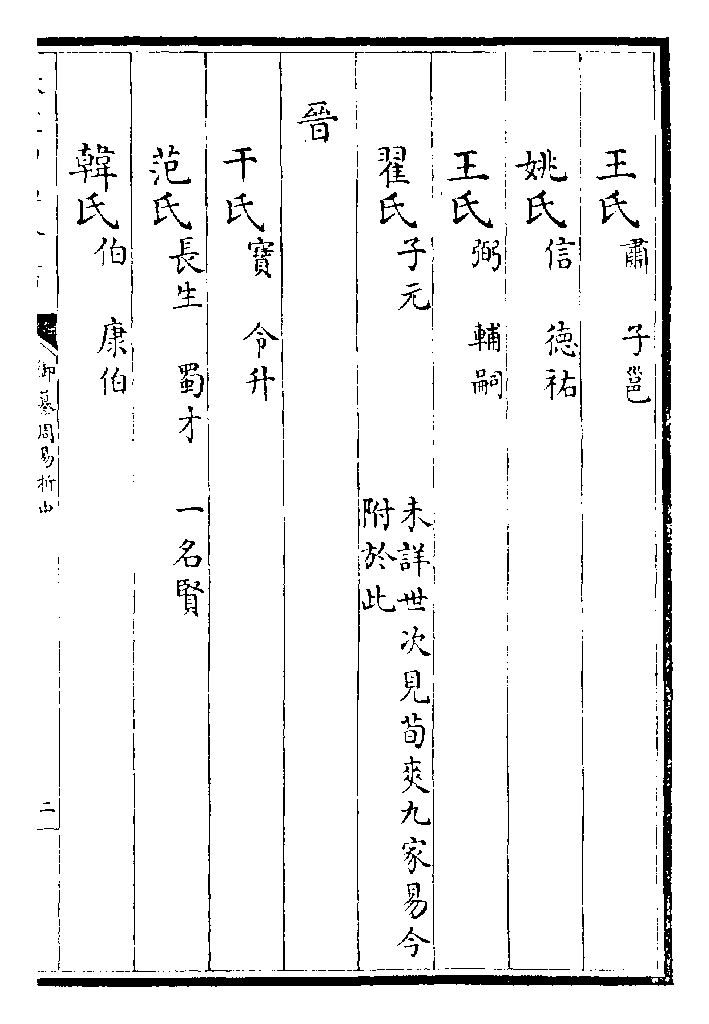 王氏肅 子邕
姚氏信 德祐
王氏弼 輔嗣
翟氏子元 未詳世次見荀爽九家易今附於此
晉
干氏寶 令升
范氏長生 蜀才 一名賢
韓氏伯 康伯
御纂周易折中
二